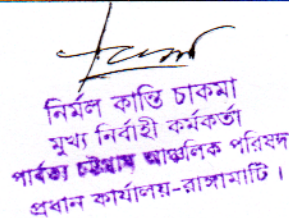 নির্মল কান্তি চাকমা
মুখ্য নির্বাহী কর্মকর্তা
পার্বত্য চট্টগ্রাম আঞ্চলিক পরিষদ
প্রধান কার্যালয়-রাঙ্গামাটি ।